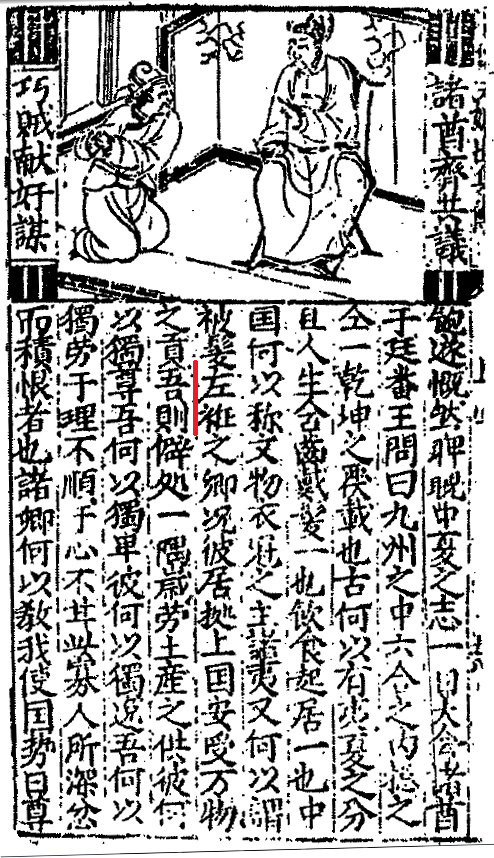 諸酋齊共議
巧賊献奸謀
遂慨然睥睨中夏之志一日大會諸酋
于廷番王問曰九州之中六合之内總之
仝一乾坤之覆載也古何以有夷夏之分
且人生含齒戴髮一也飲食起居一也中
国何以称文物衣冠之主諸夷又何以謂
被髮左袵之卿况彼居拠上国安受万物
之貢吾則僻処一隅歳劳土産之供彼何
以獨尊吾何以獨卑彼何以獨逸吾何以
獨劳于理不順于心不甘此寡人所深忿
而積恨者也諸卿何以敎我使国势日尊